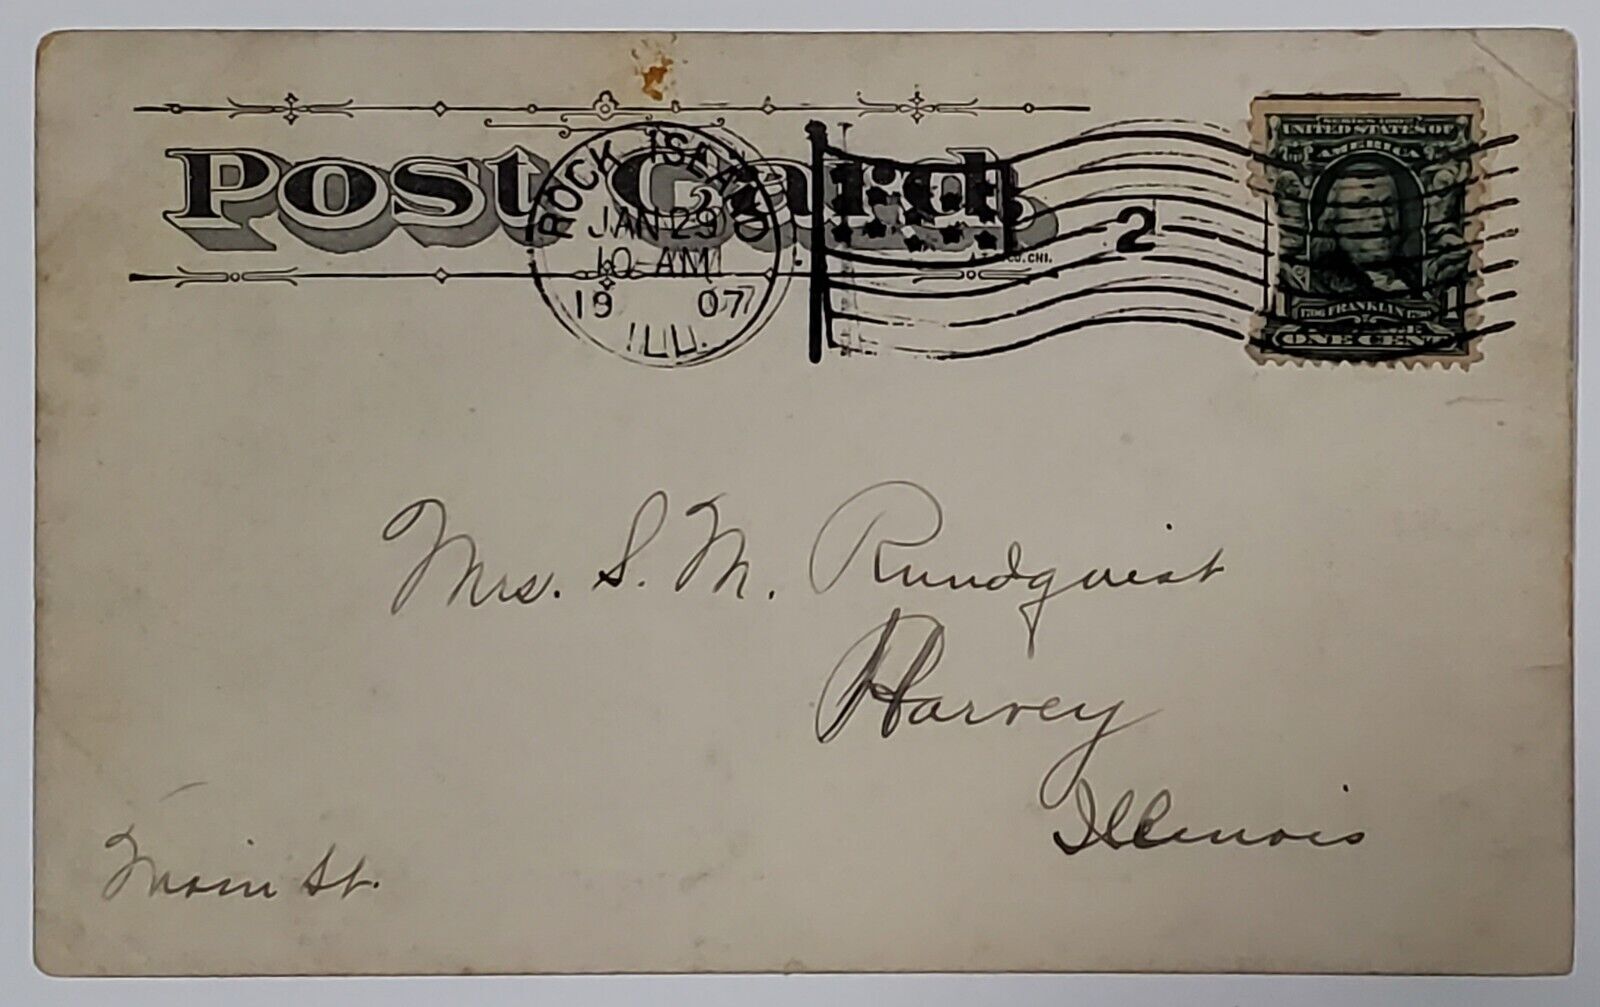 Post Card.
ROCK ISLAND
JAN 29
10-AM
1907
ILL.
2
CO. CHI.
SERIES 1902
UNITED STATES OF
AMERICA
1 1
1706 FRANKLIN 1790
ONE CENT
Mrs. S. M. Rundquist
Harvey
Illinois
Main St.